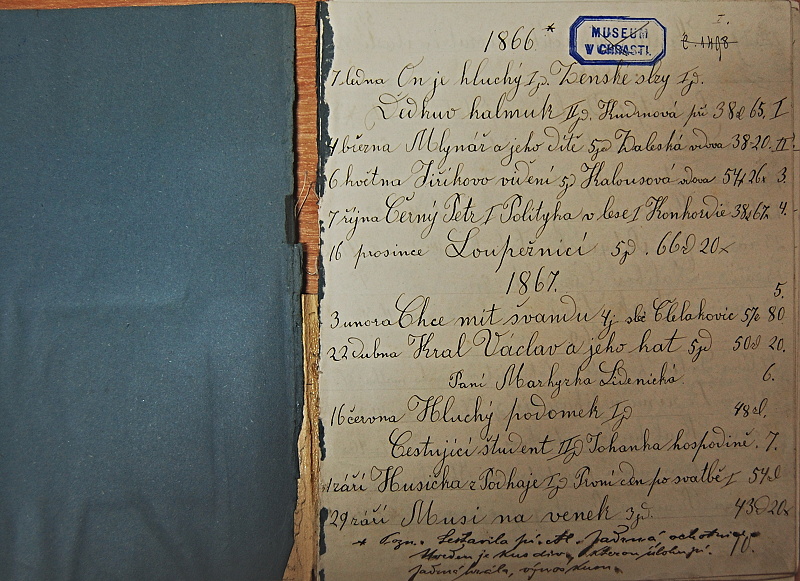 I.
1866*
MUSEUM
V CHRASTI.
č. 1498
7 ledna On je hluchý I jd. Ženské slzy I jd.
Dědkuv kalmuk II jd. Kudrnová při 38zl 65. I
4 března Mlynář a jeho dítě 5 jd Zaleská vdova 38 20. II.
6 května Jiříkovo vidění 5 jd Kalousová vdova 54z 26x 3.
7 října Černý Petr I Polityka v lese I Konkordie 38z 67x 4.
16 prosince Loupežníci 5 jd. 66zl 20x
1867.
5.
3 unora Chce mit švandu 4 j. Člelakovic 57z 80
22 dubna Kral Václav a jeho kat 5 jd 50zl 20.
Paní Markyrka Lidenická. 6.
16 června Hluchý podomek I jd 48zl.
Cestující student II jd Johanka hospodině. 7.
1 září Husička z Podhaje I jd První den po svatbě I 54zl
29 září Musi na venek 3 jd. 43zl 20x
* Pozn. Sestavila
je kus div.